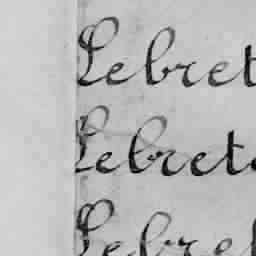 Lebret
Lebrete
Lebret